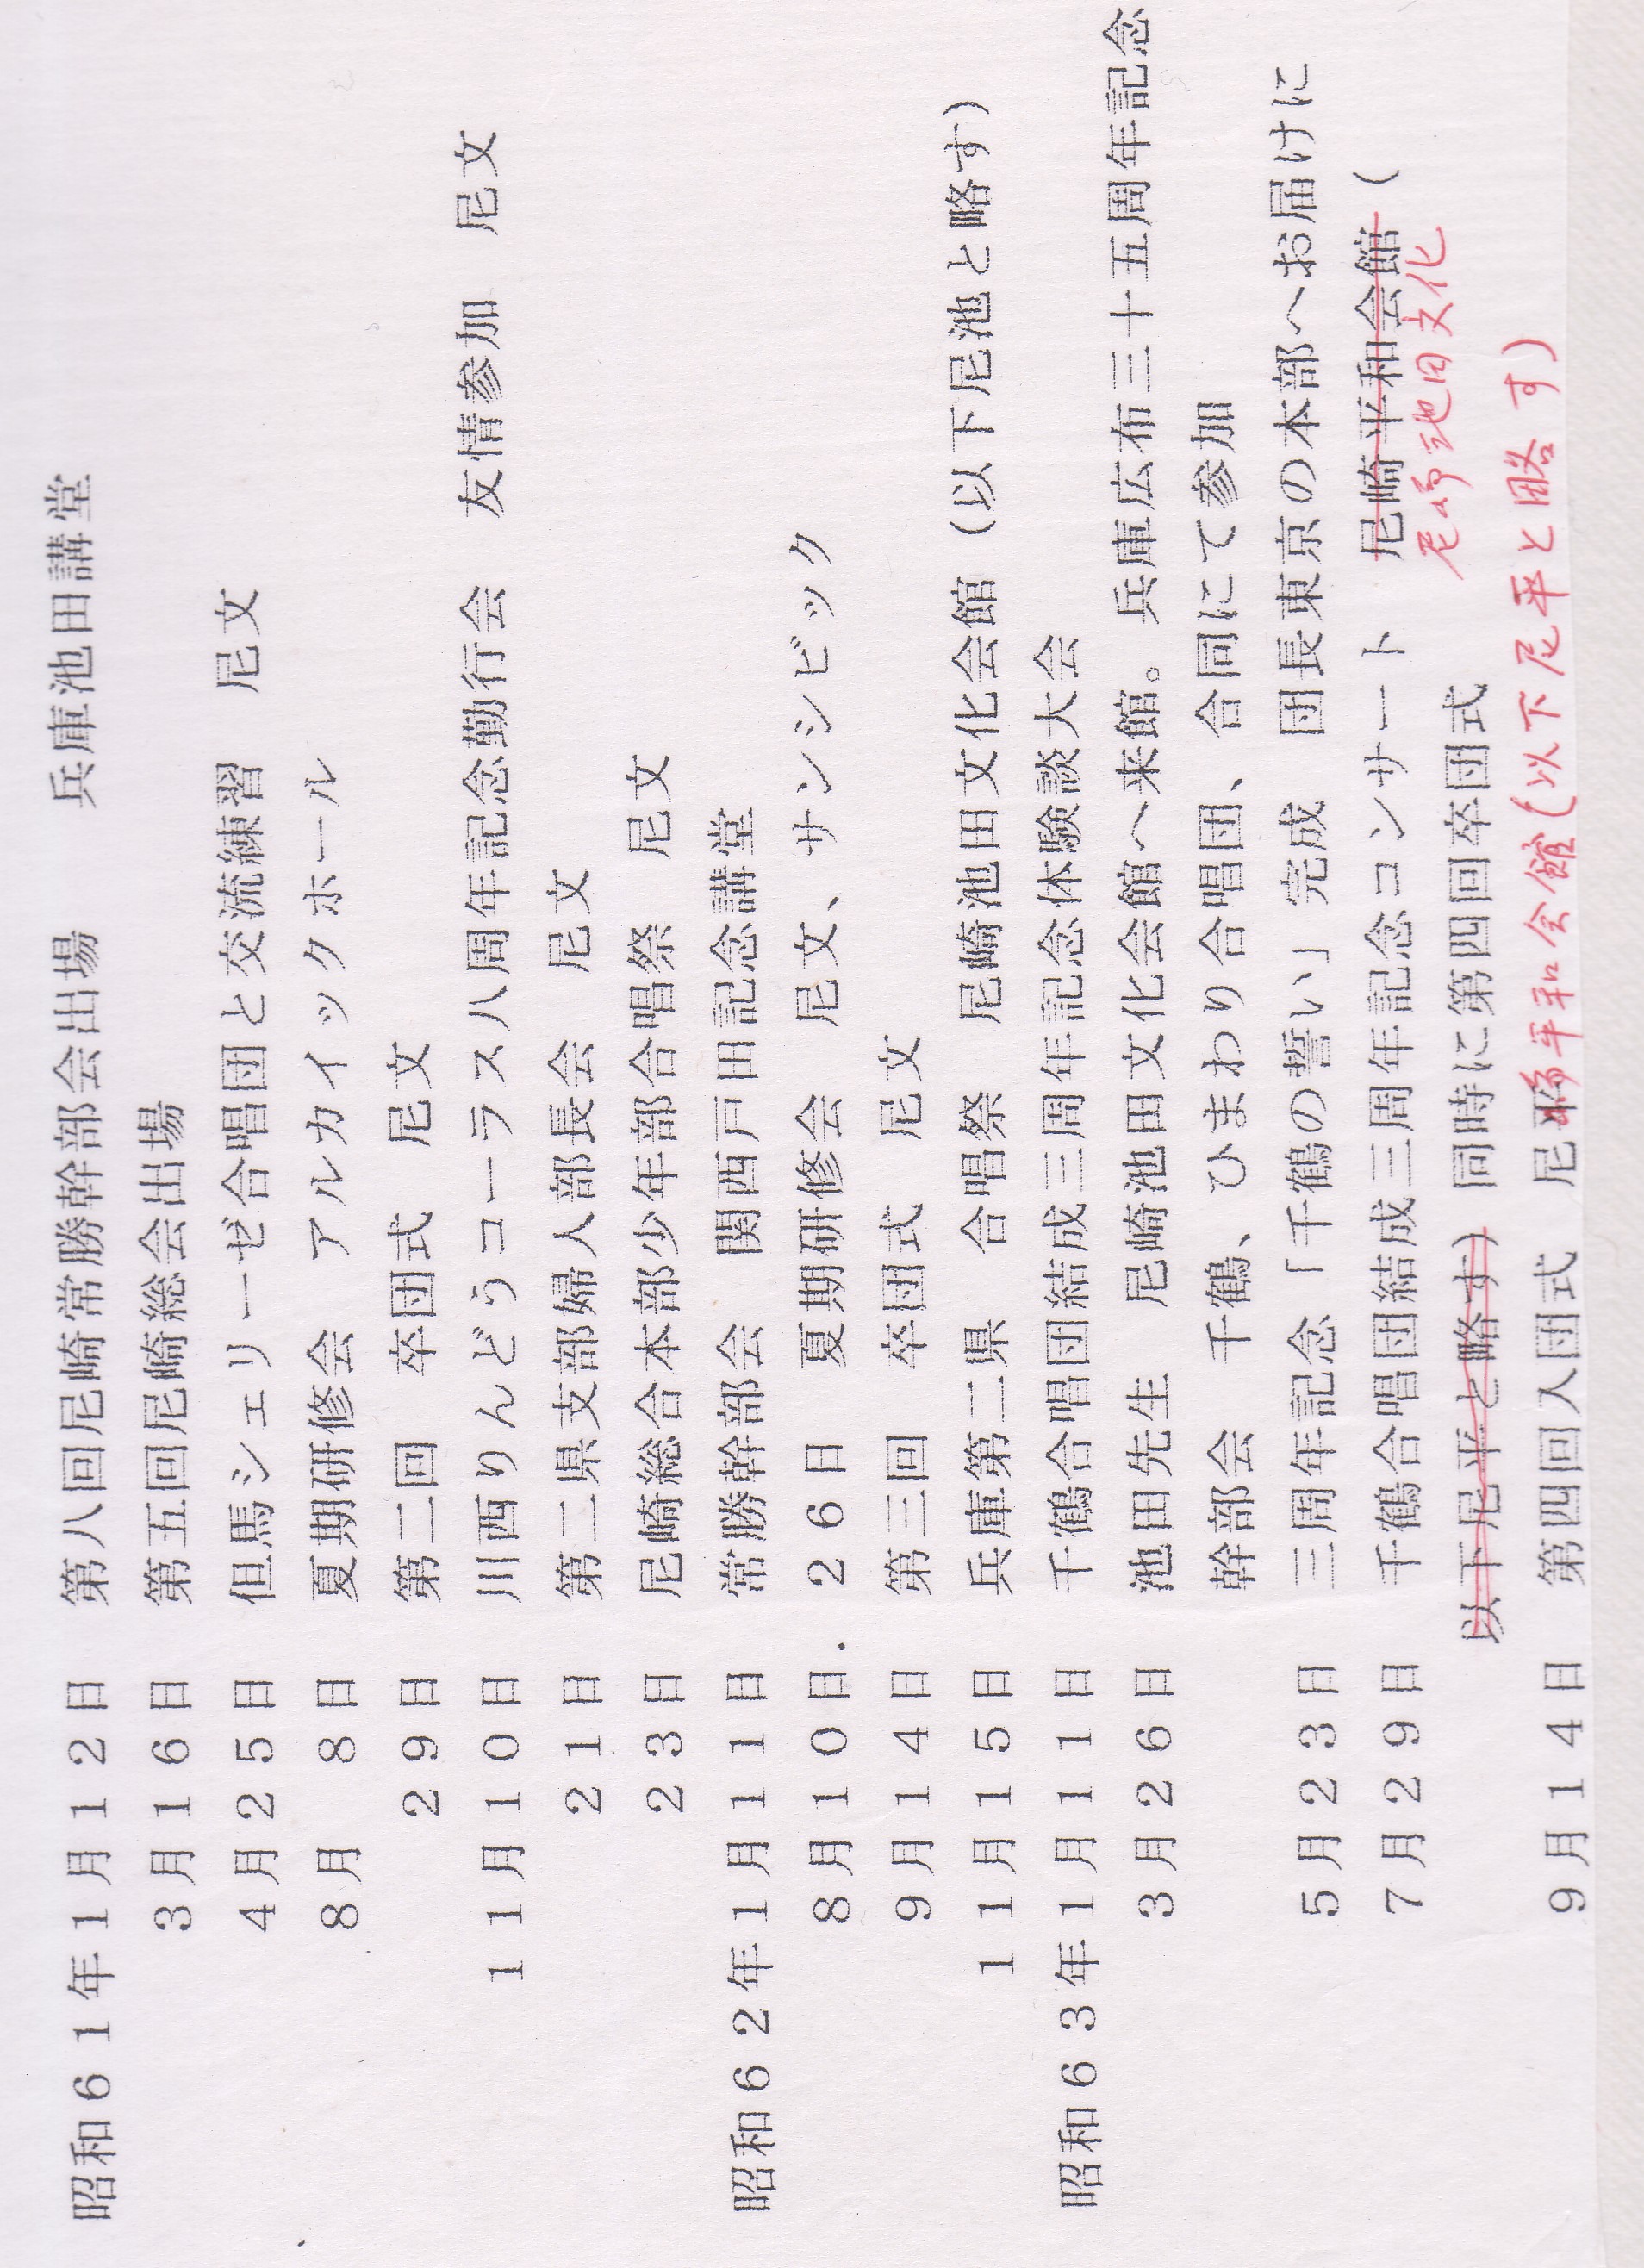 昭和61年1月12日　第八回尼崎常勝幹部会出場　　兵庫池田講堂
3月16日　第五回尼崎総会出場
4月25日　但馬シェリーゼ合唱団と交流練習　尼文
8月　8日　夏期研修会　アルカイックホール
29日　第二回　卒団式　　尼文
11月10日　川西りんどうコーラス八周年記念勤行会　友情参加　尼文
21日　第二県支部婦人部長会　尼文
23日　尼崎総合本部少年部合唱祭　尼文
昭和62年1月11日　常勝幹部会　関西戸田記念講堂
8月10日．26日　夏期研修会　尼文、サンシビック
9月14日　第三回　卒団式　尼文
11月15日　兵庫第二県　合唱祭　尼崎池田文化会館　（以下尼池と略す）
昭和63年1月11日　千鶴合唱団結成三周年記念体験談大会
3月26日　池田先生　尼崎池田文化会館へ来館。　兵庫広布三十五周年記念
幹部会　千鶴、ひまわり合唱団、合同にて参加
5月23日　三周年記念　「千鶴の誓い」完成　団長東京の本部へお届けに
7月29日　千鶴合唱団結成三周年記念コンサート　尼崎平和会館（
尼崎池田文化
以下尼平と略す）　同時に第四回卒団式
9月14日　第四回入団式　尼崎平和会館（以下尼平と略す）